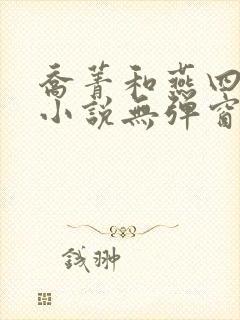 喬菁和燕四
小說無彈窗
钱翀